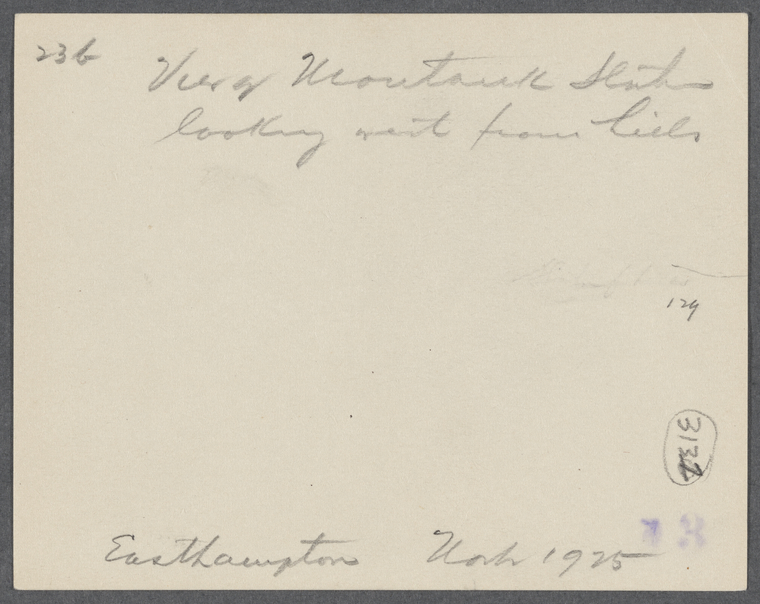 23b
View of Montauk State
looking west from hills
129
3132
Easthampton
1925